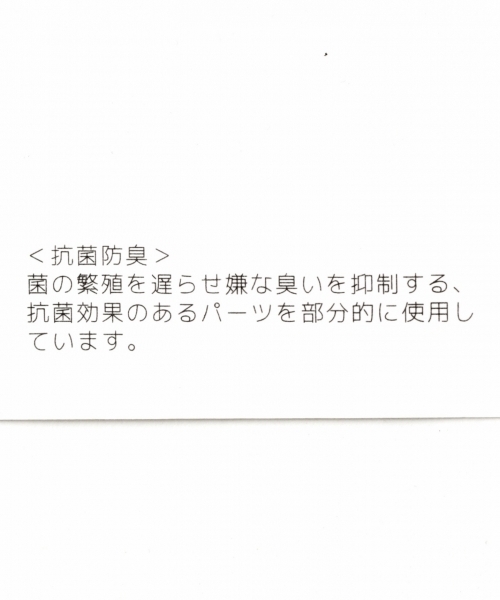 ＜抗菌防臭＞
菌の繁殖を遅らせ嫌な臭いを抑制する、
抗菌効果のあるパーツを部分的に使用し
ています。